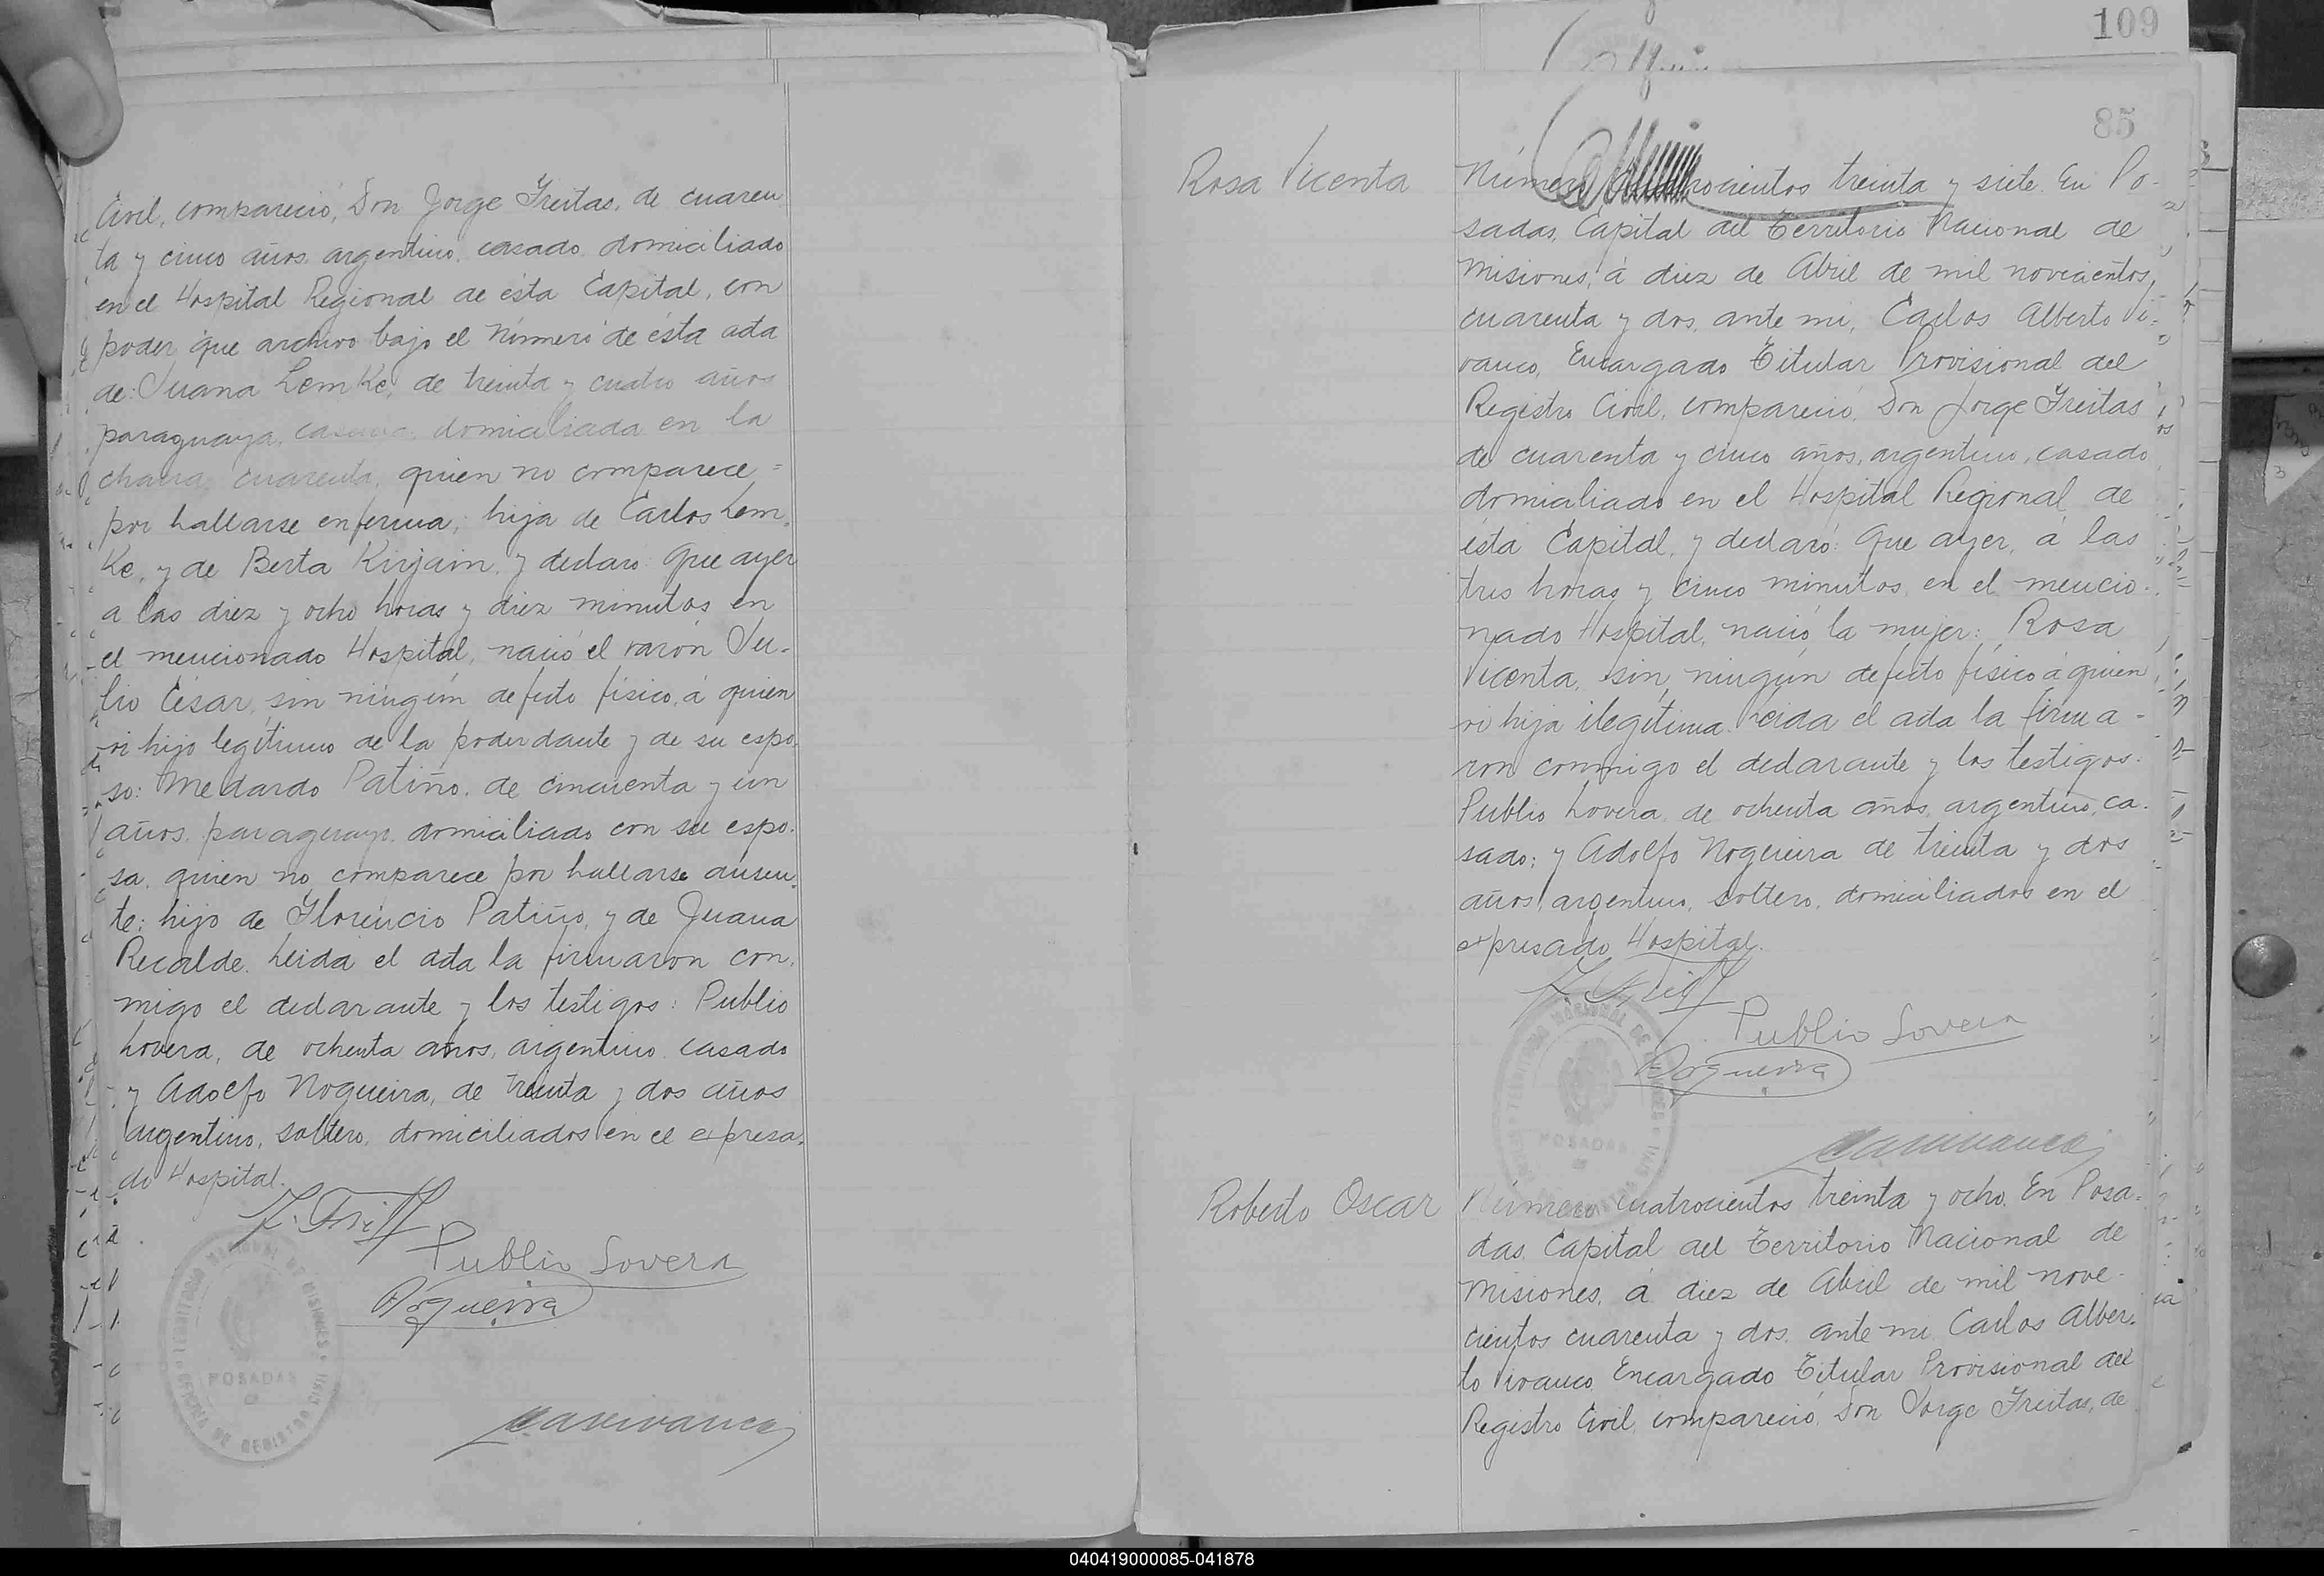 Civil, compareció, Don Jorge Freitas, de cuaren
ta y cinco años, argentino, casado, domiciliado
en el Hospital Regional de ésta Capital, con
poder que archivo bajo el Número de ésta acta
de: Juana Lemke, de treinta y cuatro años
paraguaya, casada, domiciliada en la
chacra cuarenta, quien no comparece =
por hallarse enferma; hija de Carlos Lem.
ke, y de Berta Kirjain, y declaró: Que ayer
a las diez y ocho horas y diez minutos en
el mencionado Hospital, nació el varón Ju-
lio César, sin ningún defecto físico, á quien
vi hijo legítimo de la poderdante y de su espo.
so: Medardo Patiño, de cincuenta y un
años, paraguayo, domiciliado con su espo.
sa, quien no comparece por hallarse ausen.
te; hijo de Florencio Patiño, y de Juana
Recalde. Leída el acta la firmaron con.
migo el declarante y los testigos: Publio
Lovera, de ochenta años, argentino casado
y Adolfo Nogueira, de treinta y dos años
argentino, soltero, domiciliados en el expresa.
do Hospital.
Publio Lovera
Nogueira
TERRITORIO NACIONAL DE MISIONES
POSADAS
OFICINA DE REGISTRO CIVIL
109
85
Rosa Vicenta
Número cuatrocientos treinta y siete. En Po-
sadas, Capital del Territorio Nacional de
Misiones, á diez de Abril de mil novecientos
cuarenta y dos, ante mi, Carlos Alberto Vi=
vanco, Encargado Titular Provisional del
Registro Civil, compareció, Don Jorge Freitas
de cuarenta y cinco años, argentino, casado
domiciliado en el Hospital Regional de
ésta Capital, y declaró: Que ayer, á las
tres horas y cinco minutos, en el mencio-
nado Hospital, nació la mujer: Rosa
Vicenta, sin ningún defecto físico á quien
vi hija ilegítima. Leida el acta la firma -
ron conmigo el declarante y los testigos:
Publio Lovera, de ochenta años, argentino, ca.
sado; y Adolfo Nogueira de treinta y dos
años, argentino, soltero, domiciliados en el
expresado Hospital.
Publio Lovera
Nogueira
POSADAS
Roberto Oscar
Número cuatrocientos treinta y ocho. En Posa-
das, Capital del Territorio Nacional de
Misiones, á diez de Abril de mil nove-
cientos cuarenta y dos, ante mi Carlos Alber.
to Vivanco, Encargado Titular Provisional del
Registro Civil, compareció, Don Jorge Freitas, de
040419000085-041878